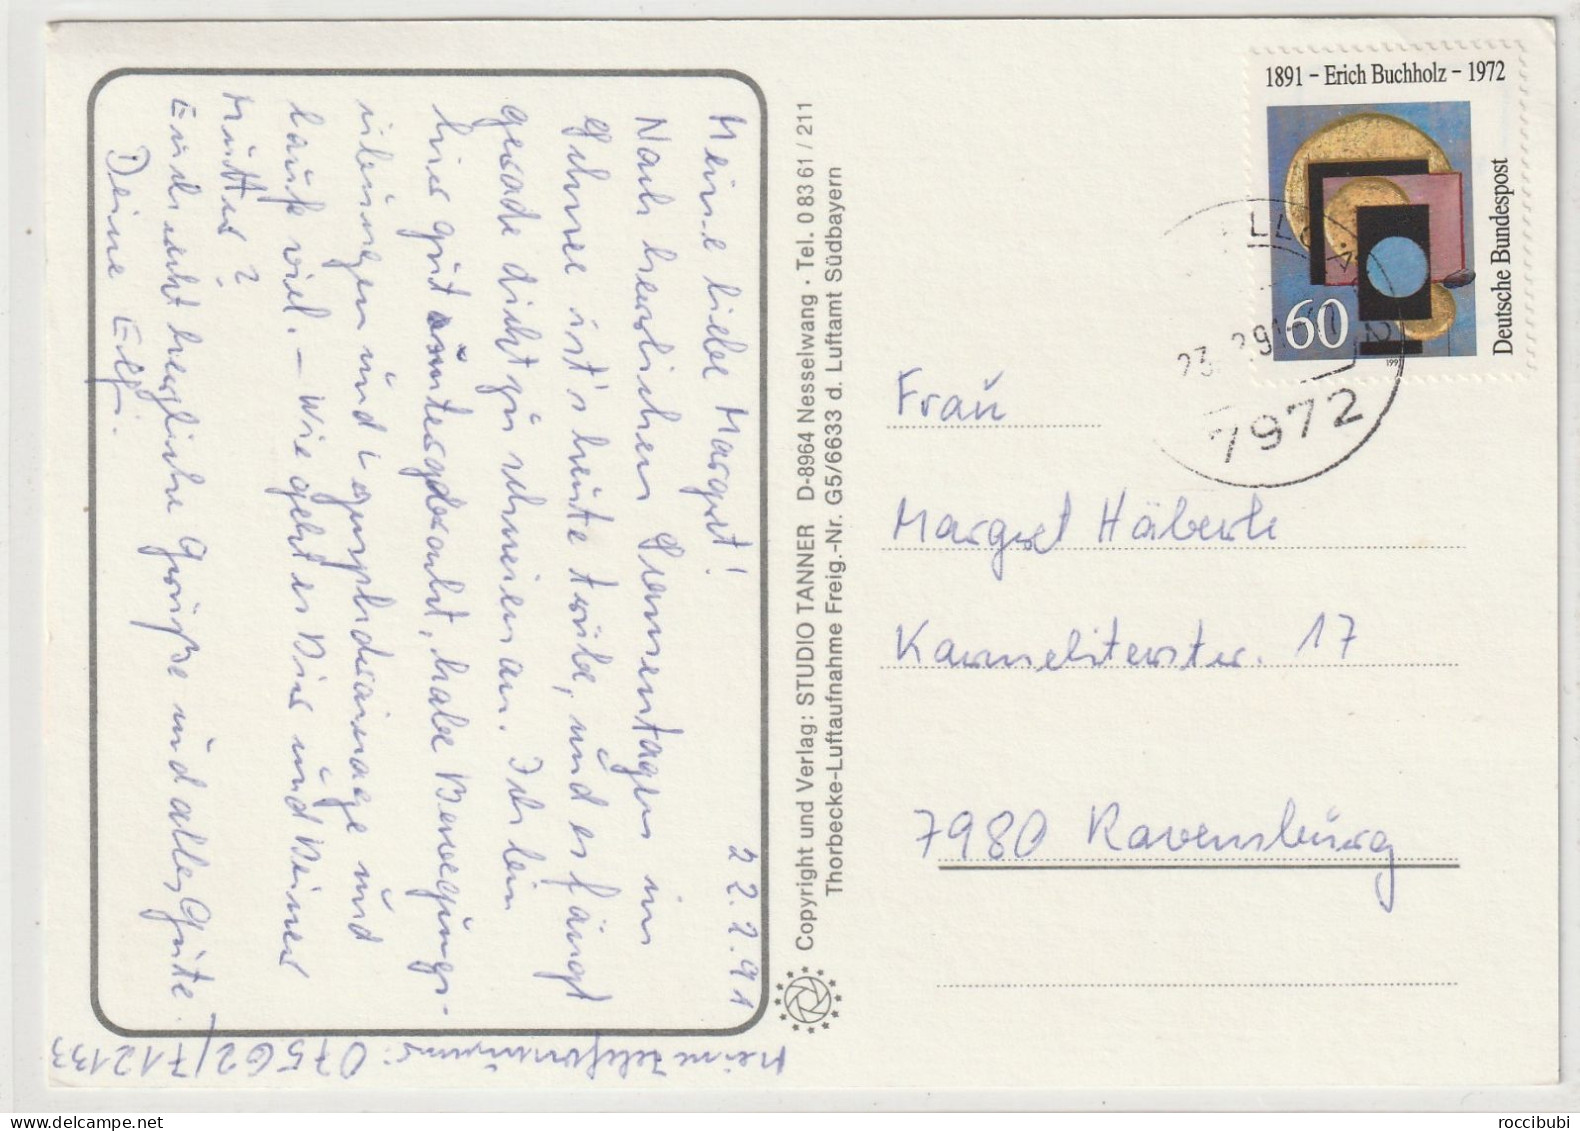 22.2.91
Meine liebe Margret!
Nach herrlichen Sonnentagen im
Schnee ist's heute trübe, und es fängt
gerade dicht zu schneien an. Ich bin
hier gut untergebracht, habe Bewegungs-
übungen und Lymphdrainage und
laufe viel. – Wie geht es Dir und Deiner
Mutter?
Euch recht herzliche Grüße und alles Gute.
Deine
Meine Telefonnummer: 07562/712133
Copyright und Verlag: STUDIO TANNER D-8964 Nesselwang · Tel. 0 83 61 / 211
Thorbecke-Luftaufnahme Freig.-Nr. G5/6633 d. Luftamt Südbayern
1891 – Erich Buchholz – 1972
Deutsche Bundespost
60
1991
7972
Frau
Margret Häberle
Karmeliterstr. 17
7980 Ravensburg
roccibubi